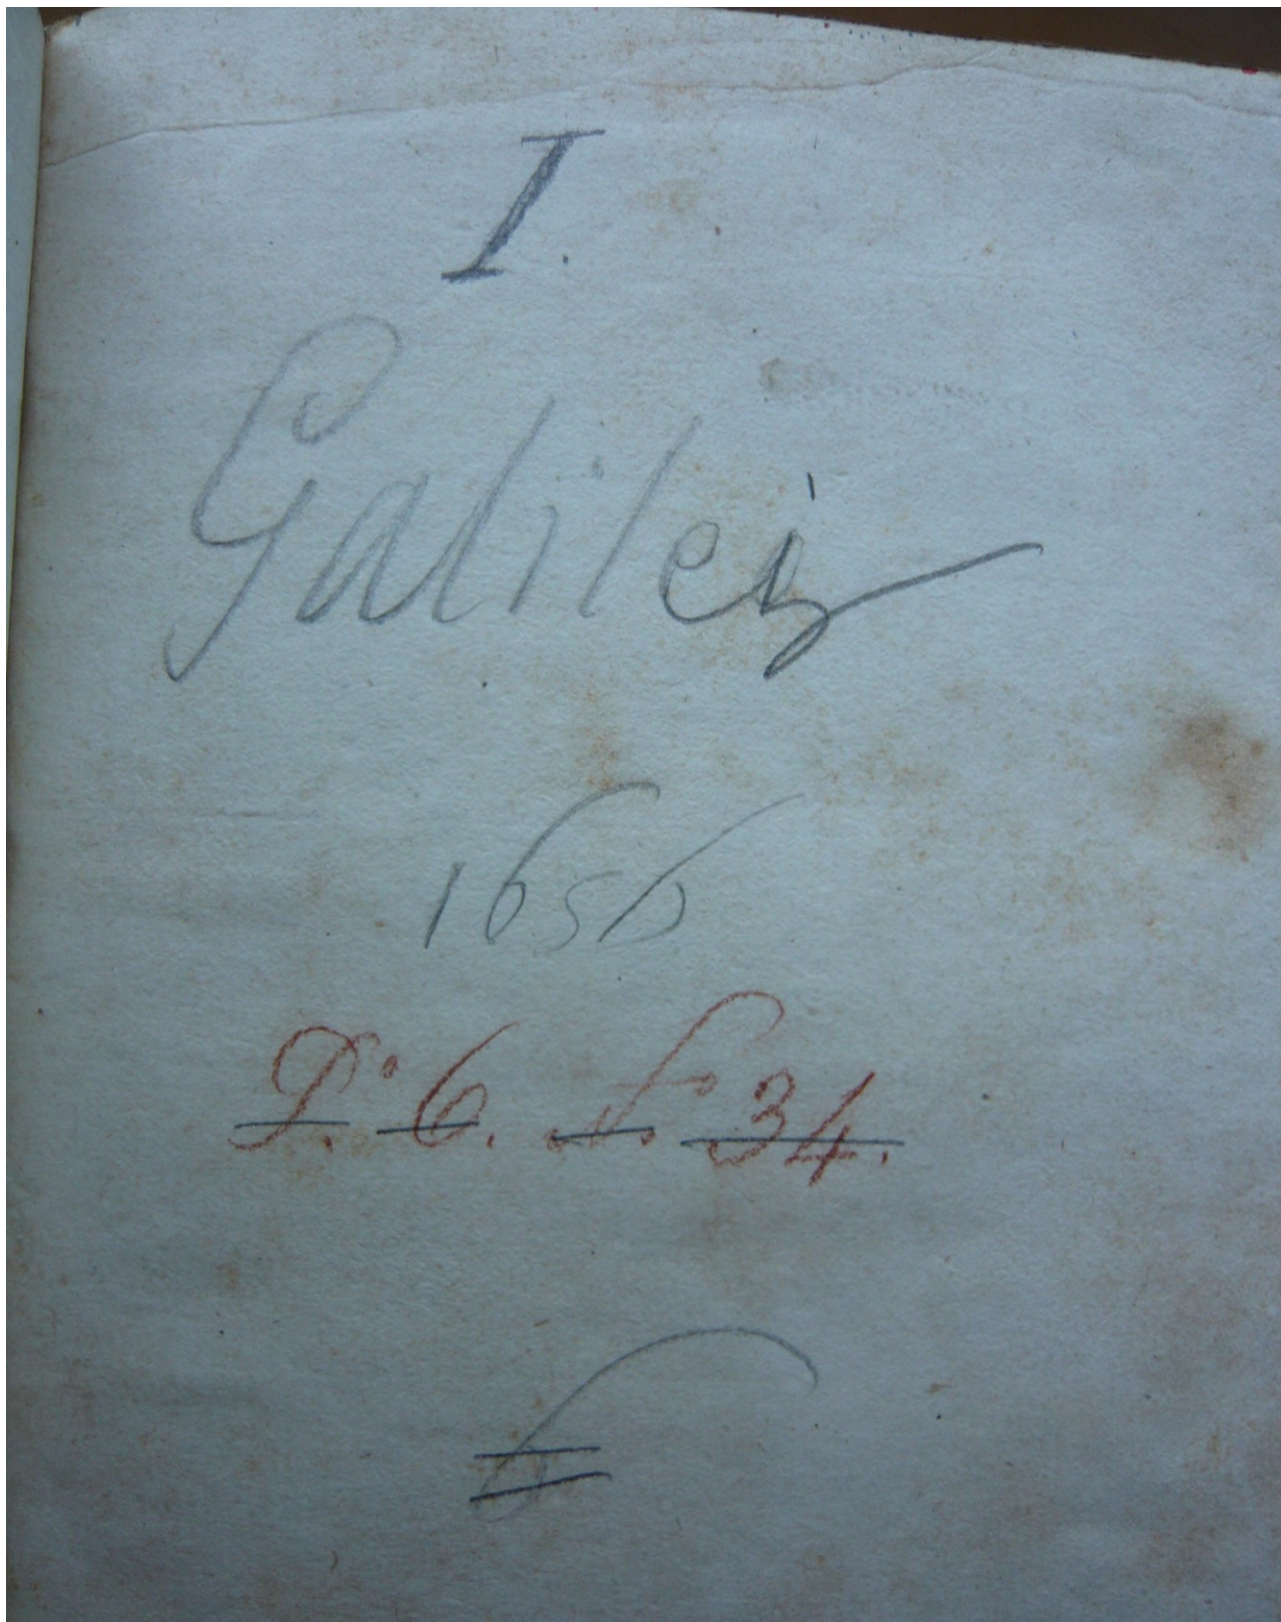 I.
Galilei
1656
P. 6. N. 34.
6